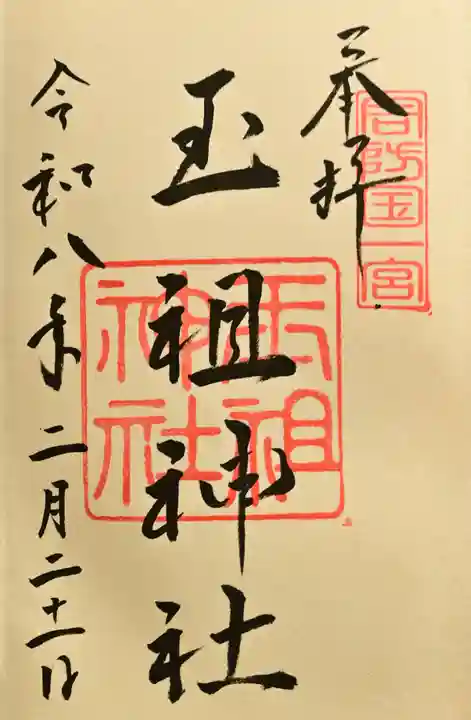 奉拝
周防国一宮
玉祖神社
玉祖神社
令和八年二月二十一日